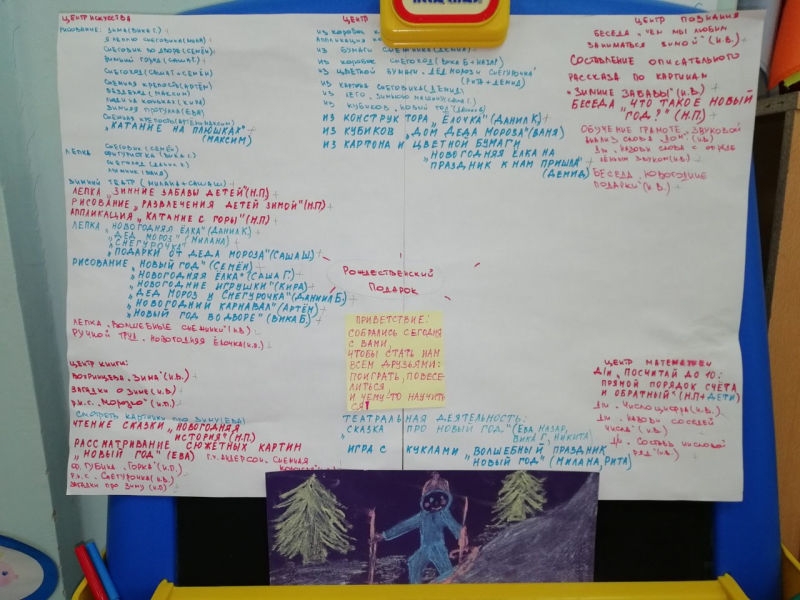 ЦЕНТР ИСКУССТВА
РИСОВАНИЕ: ЗИМА (ВИКА Г.)
СНЕГОВИК ВО ДВОРЕ (СЕМЁН)
ЗИМНИЙ ГОРОД (САША Г.)
СНЕГОХОД (САША Г + СЕМЁН)
СНЕЖНАЯ КРЕПОСТЬ (АРТЁМ)
ВЕЗДЕХОД (МАКСИМ)
ЛЮДИ НА КОНЬКАХ (КИРА)
ЗИМНЯЯ ПРОГУЛКА (ЕВА)
СНЕЖНАЯ КРЕПОСТЬ (АРТЁМ, МАКСИМ)
"КАТАНИЕ НА ПЛЮШКАХ"
(МАКСИМ)
ЛЕПКА СНЕГОВИК (СЕМЁН)
ФИГУРИСТКА (ВИКА Г.)
СНЕГОХОД (ДАНИЛ К)
ЗИМНИЙ ТЕАТР (МИЛАНА + САША Ш)
ЛЕПКА "ЗИМНИЕ ЗАБАВЫ ДЕТЕЙ" (Н.П)
РИСОВАНИЕ "РАЗВЛЕЧЕНИЯ ДЕТЕЙ ЗИМОЙ" (Н.П)
АППЛИКАЦИЯ "КАТАНИЕ С ГОРЫ" (Н.П)
ЛЕПКА "НОВОГОДНЯЯ ЁЛКА" (ДАНИЛ К.)
"ДЕД МОРОЗ" (МИЛАНА)
"СНЕГУРОЧКА"
"ПОДАРКИ ОТ ДЕДА МОРОЗА" (САША Ш)
РИСОВАНИЕ "НОВЫЙ ГОД" (СЕМЁН)
"НОВОГОДНЯЯ ЁЛКА" (САША Г.)
"НОВОГОДНИЕ ИГРУШКИ" (КИРА)
"ДЕД МОРОЗ И СНЕГУРОЧКА" (ДАНИЛ Б.)
"НОВОГОДНИЙ КАРНАВАЛ" (АРТЁМ)
"НОВЫЙ ГОД ВО ДВОРЕ" (ВИКА Б.)
ЛЕПКА "ВОЛШЕБНЫЕ СНЕЖИНКИ" (И.В.)
РУЧНОЙ ТРУД "НОВОГОДНЯЯ ЁЛОЧКА" (И.В.)
ЦЕНТР КНИГИ:
"ЗИМА" (И.В.)
ЗАГАДКИ О ЗИМЕ (И.В.)
Р.Н.С. "МОРОЗКО" (И.В.)
СМОТРЕТЬ КАРТИНКИ ПРО ЗИМУ (ЕВА)
ЧТЕНИЕ СКАЗКИ "НОВОГОДНЯЯ
ИСТОРИЯ" (Н.П)
РАССМАТРИВАНИЕ СЮЖЕТНЫХ КАРТИН
"НОВЫЙ ГОД" (ЕВА) Г.Х. АНДЕРСЕН. СНЕЖНАЯ
ГУБИНА "ГОРКА" (И.В.)
Р.Н.С. СНЕГУРОЧКА (И.В.)
ЗАГАДКИ ПРО ЗИМУ (И.В)
ЦЕНТР
ИЗ КОРОБОК
АППЛИКАЦИЯ
ИЗ БУМАГИ СНЕЖИНКА (ДЕМИД)
ИЗ КОРОБОК СНЕГОХОД (ВИКА Б + НАЗАР)
ИЗ ЦВЕТНОЙ БУМАГИ "ДЕД МОРОЗ И СНЕГУРОЧКА"
(РИТА + ДЕМИД)
ИЗ КАРТОНА СНЕГОВИКА (ДЕМИД)
ИЗ ЛЕГО "ЗИМНЮЮ МАШИНУ" (САША Г.)
ИЗ КУБИКОВ "НОВЫЙ ГОД"
ИЗ КОНСТРУКТОРА "ЁЛОЧКА" (ДАНИЛ К)
ИЗ КУБИКОВ "ДОМ ДЕДА МОРОЗА" (ВАНЯ)
ИЗ КАРТОНА И ЦВЕТНОЙ БУМАГИ
"НОВОГОДНЯЯ ЁЛКА НА
ПРАЗДНИК К НАМ ПРИШЛА"
(ДЕМИД)
РОЖДЕСТВЕНСКИЙ
ПОДАРОК
ПРИВЕТСТВИЕ:
СОБРАЛИСЬ СЕГОДНЯ
С ВАМИ,
ЧТОБЫ СТАТЬ НАМ
ВСЕМ ДРУЗЬЯМИ:
ПОИГРАТЬ, ПОВЕСЕ-
ЛИТЬСЯ
И ЧЕМУ-ТО НАУЧИТЬ
СЯ!
ТЕАТРАЛЬНАЯ ДЕЯТЕЛЬНОСТЬ:
СКАЗКА ПРО НОВЫЙ ГОД" (ЕВА, НАЗАР,
ВИКА Г, НИКИТА)
ИГРА С КУКЛАМИ "ВОЛШЕБНЫЙ ПРАЗДНИК
НОВЫЙ ГОД" (МИЛАНА, РИТА)
ЦЕНТР ПОЗНАНИЯ
БЕСЕДА "ЧЕМ МЫ ЛЮБИМ
ЗАНИМАТЬСЯ ЗИМОЙ" (И.В.)
СОСТАВЛЕНИЕ ОПИСАТЕЛЬНОГО
РАССКАЗА ПО КАРТИНАМ
"ЗИМНИЕ ЗАБАВЫ" (И.В.)
БЕСЕДА "ЧТО ТАКОЕ НОВЫЙ
ГОД?" (Н.П)
ОБУЧЕНИЕ ГРАМОТЕ. ЗВУКОВОЙ
АНАЛИЗ СЛОВА "ДОМ" (И.В)
Д/И "НАЗОВИ СЛОВА С ОПРЕДЕ
ЛЁННЫМ ЗВУКОМ (И.В)
БЕСЕДА "НОВОГОДНИЕ
ПОДАРКИ" (И.В.)
ЦЕНТР МАТЕМАТИКИ
Д/И "ПОСЧИТАЙ ДО 10:
ПРЯМОЙ ПОРЯДОК СЧЁТА
И ОБРАТНЫЙ" (Н.П + ДЕТИ)
Д/И "ЧИСЛО И ЦИФРА" (И.В.)
Д/И "НАЗОВИ СОСЕДЕЙ
ЧИСЛА" (И.В.)
Д/И "СОСТАВЬ ЧИСЛОВОЙ
РЯД" (И.В.)